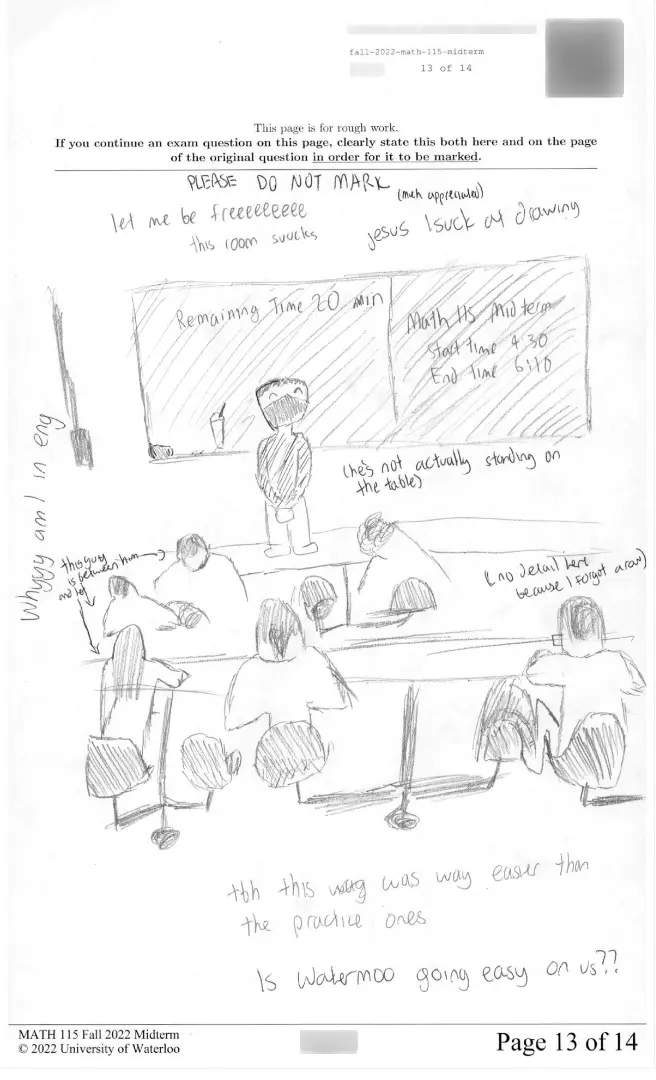 fall-2022-math-115-midterm
13 of 14
This page is for rough work.
If you continue an exam question on this page, clearly state this both here and on the page
of the original question in order for it to be marked.
PLEASE DO NOT MARK
(much appreciated)
let me be freeeeeeeee
this room suucks
jesus I suck at drawing
Remaining Time 20 min
Math 115 Midterm
Start time 4:30
End Time 6:10
(he's not actually standing on
the table)
Whyyy am I in eng
this guy
is between him
and
(no detail here
because I forgot a row)
tbh this was way easier than
the practice ones
Is Watermoo going easy on us??
MATH 115 Fall 2022 Midterm
© 2022 University of Waterloo
Page 13 of 14